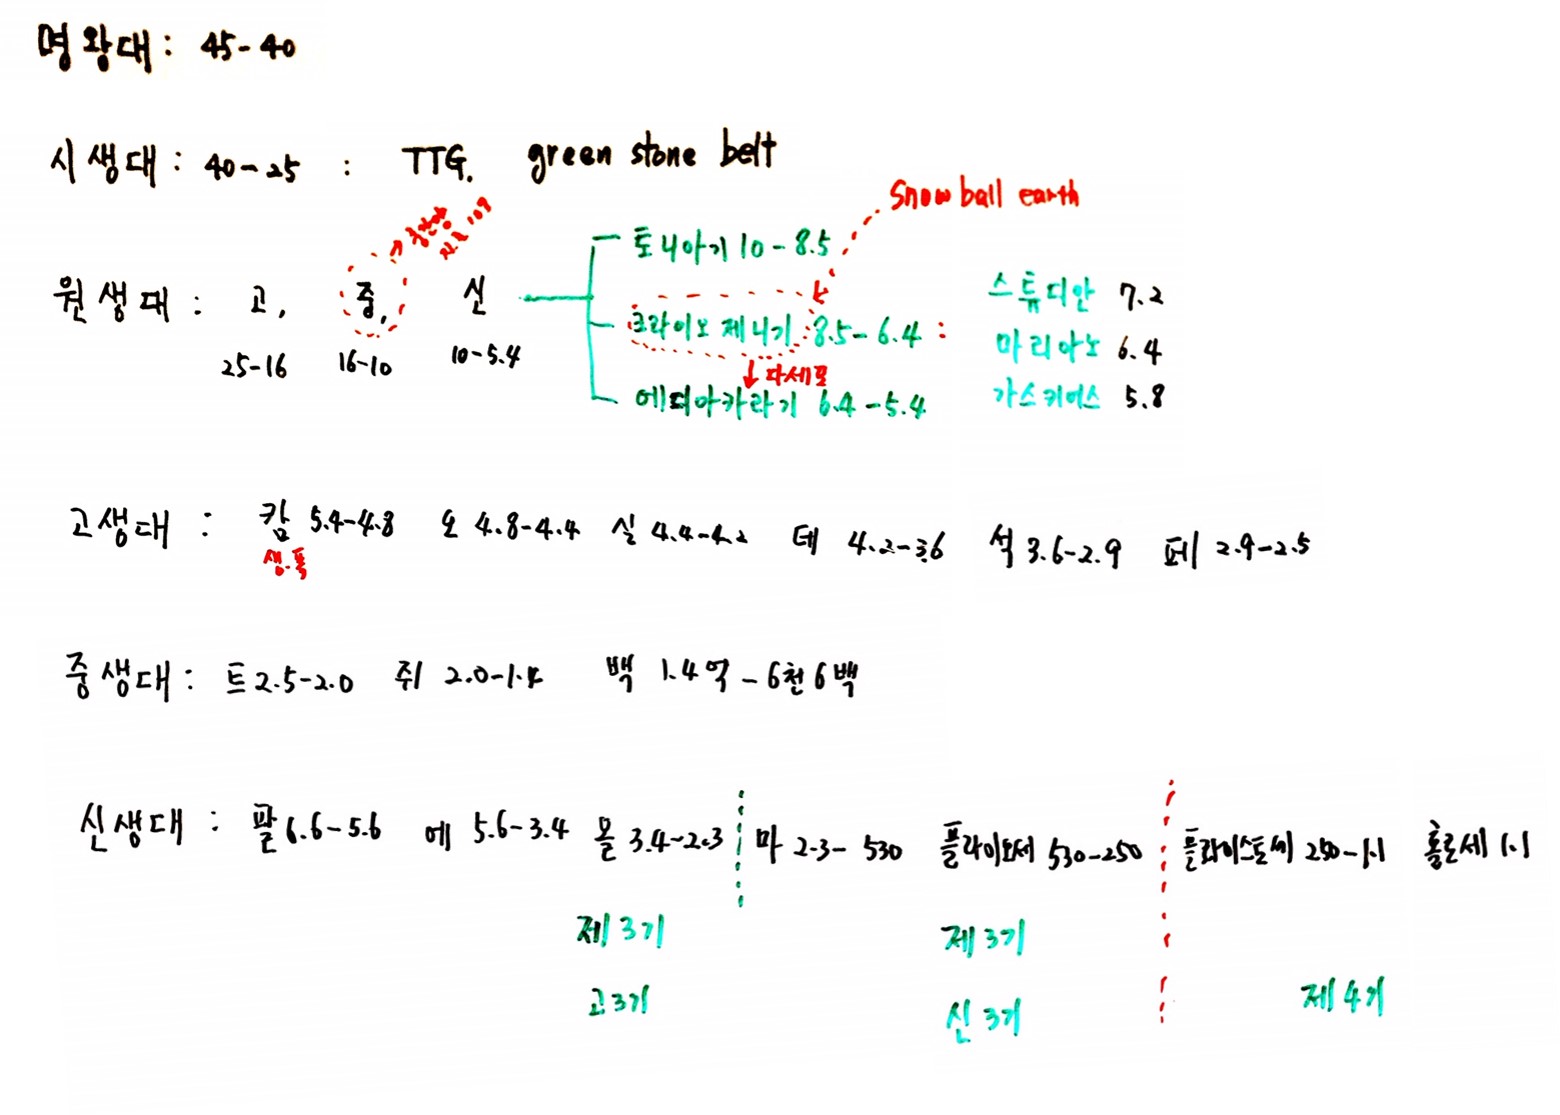 명왕대 : 45-40
시생대 : 40-25 : TTG. green stone belt
Snow ball earth
토니아기 10-8.5
원생대 : 고, 중, 신
25-16 16-10 10-5.4
크라이오제니기 8.5-6.4 :
다세포
에디아카라기 6.4-5.4
스튜디안 7.2
마리아노 6.4
가스키어스 5.8
고생대 : 캄 5.4-4.8 오 4.8-4.4 실 4.4-4.2 데 4.2-3.6 석 3.6-2.9 페 2.9-2.5
생.폭
중생대 : 트 2.5-2.0 쥐 2.0-1.4 백 1.4억-6천6백
신생대 : 팔 6.6-5.6 에 5.6-3.4 올 3.4-2.3 마 2.3-530 플라이오세 530-250 플라이스토세 250-1.1 홀로세 1.1
제3기 제3기
고3기 신3기 제4기